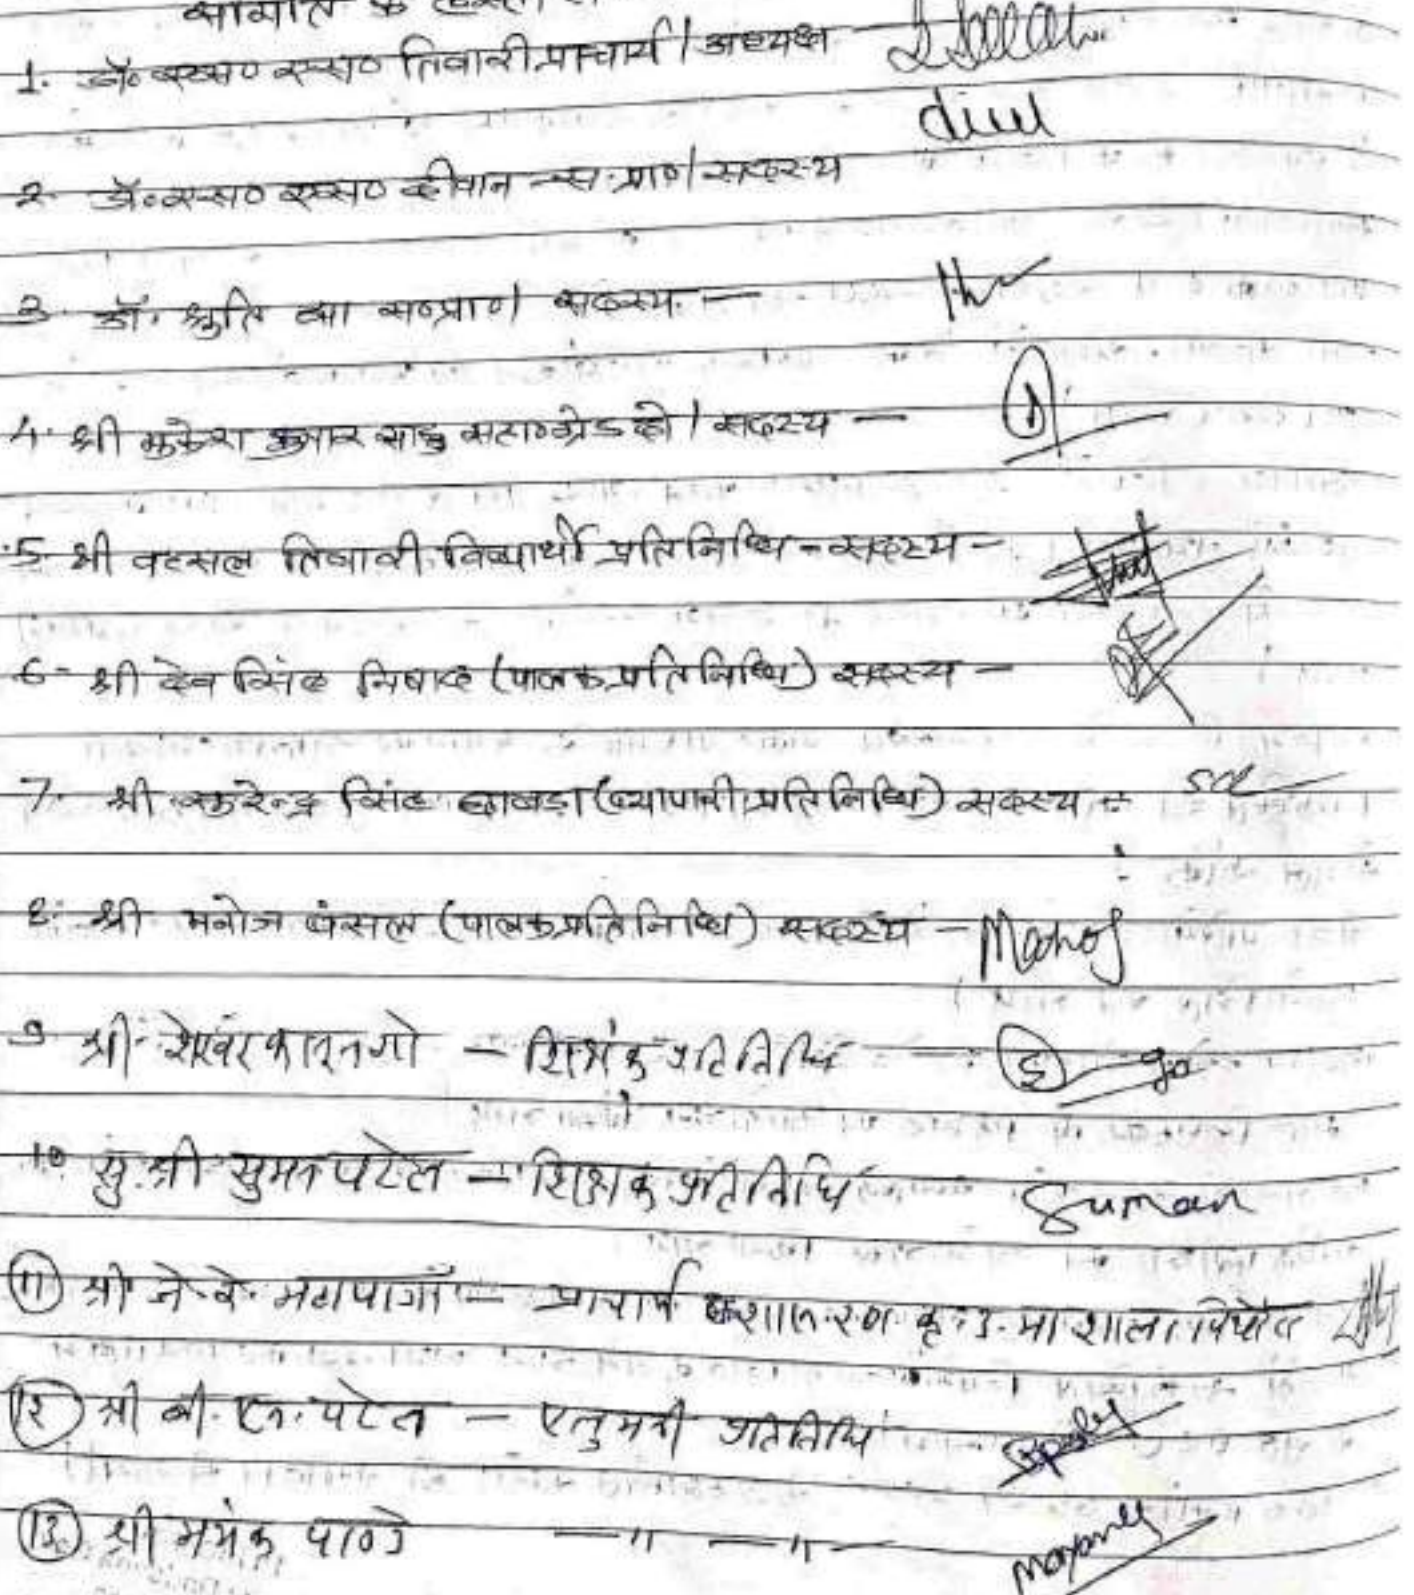 1. डॉ० एस० एस० तिवारी प्राचार्य / अध्यक्ष
2. डॉ० एस० एस० दीवान स.प्रा०/ सदस्य
3. डॉ. श्रुति झा स०प्रा०/ सदस्य -
4. श्री मुकेश कुमार साहू सहा०ग्रेड दो / सदस्य -
5 श्री वत्सल तिवारी विद्यार्थी प्रतिनिधि - सदस्य -
6 - श्री देव सिंह निषाद (पालक प्रतिनिधि) सदस्य -
7. श्री सुरेन्द्र सिंह छाबड़ा (व्यापारी प्रतिनिधि) सदस्य -
8. श्री मनोज बंसल (पालक प्रतिनिधि) सदस्य - Manoj
9 श्री शेखर कानूनगो - शिक्षक प्रतिनिधि
10 सु.श्री सुमन पटेल - शिक्षक प्रतिनिधि Suman
11 श्री जे. के. - प्राचार्य उ. मा शाला
12 श्री बी. एन. पटेल - एलुमनी प्रतिनिधि
13 श्री मयंक पाण्डे - " - " - Mayank